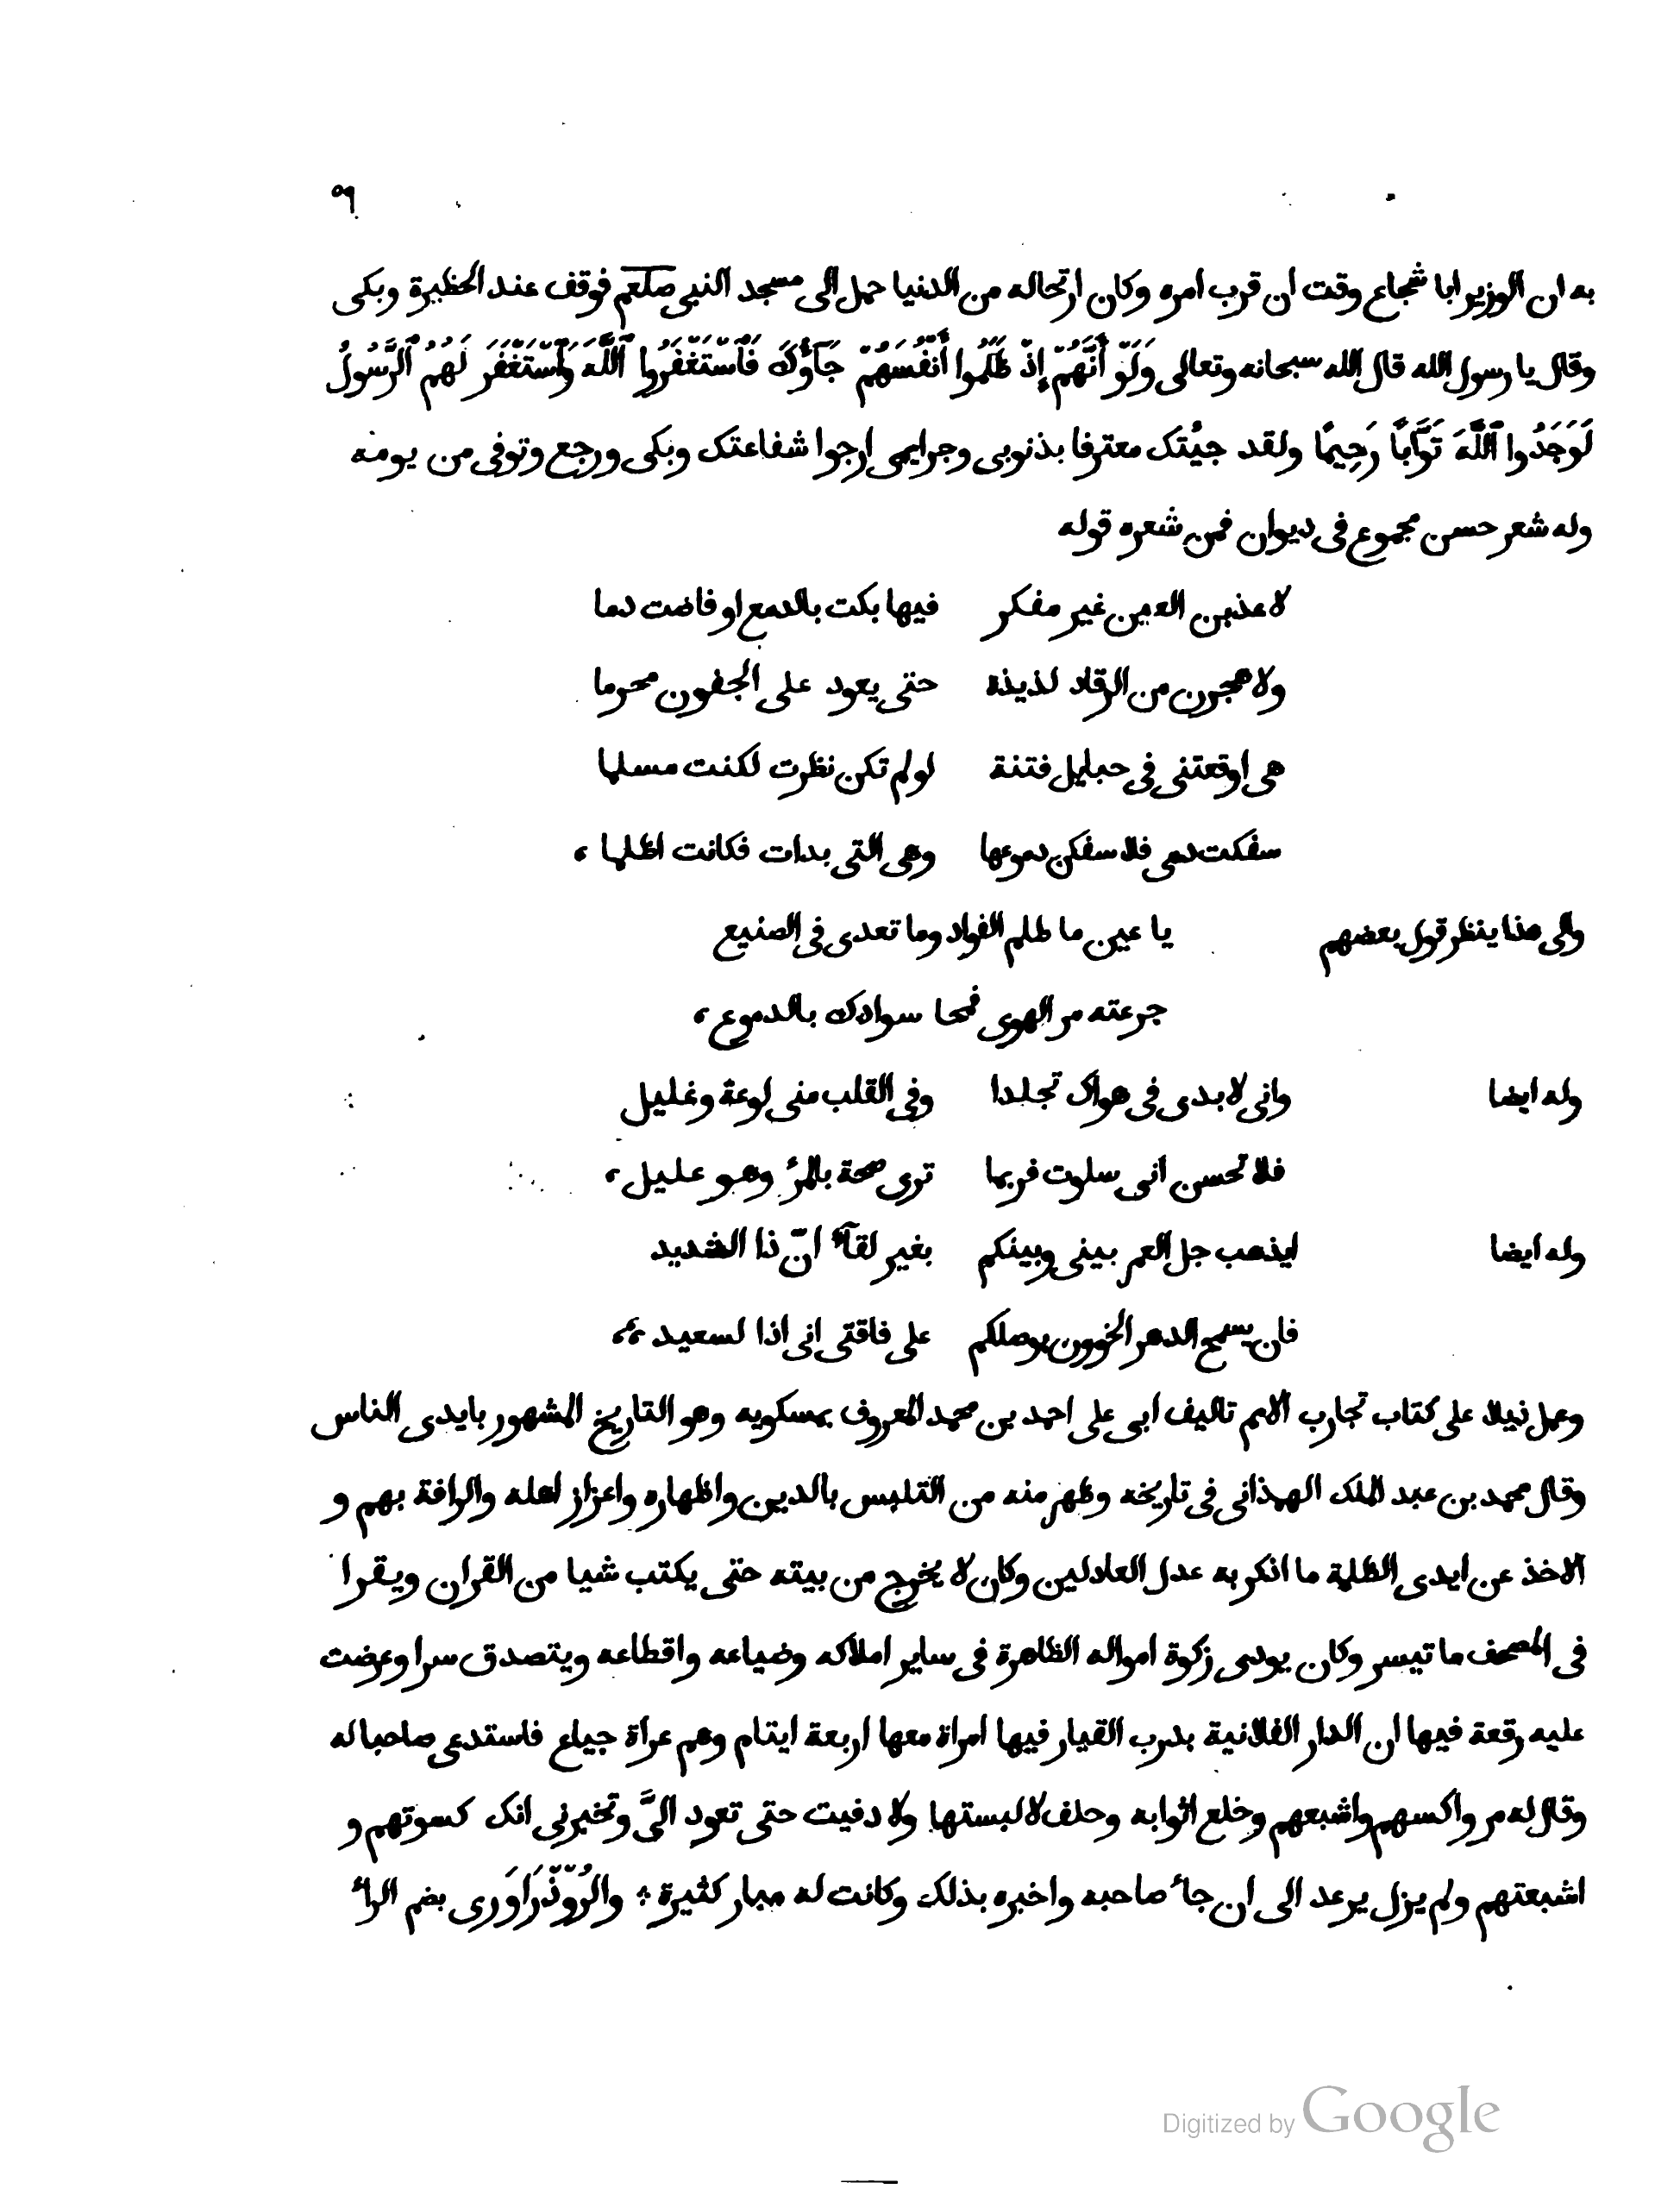 ٥٩
به ان الوزير ابا شجاع وقت ان قرب امره وكان ارتحاله من الدنيا حمل الى مسجد النبى صلعم فوقف عند الحظيرة وبكى
وقال يا رسول الله قال الله سبحانه وتعالى وَلَوْ أَنَّهُمْ إِذْ ظَلَمُوا أَنْفُسَهُمْ جَآؤُكَ فَٱسْتَغْفَرُوا ٱللَّهَ وَٱسْتَغْفَرَ لَهُمُ ٱلرَّسُولُ
لَوَجَدُوا ٱللَّهَ تَوَّابًا رَحِيمًا ولقد جيُتك معترفا بذنوبى وجرايمى ارجوا شفاعتك وبكى ورجع وتوفى من يومه
وله شعر حسن مجموع فى ديوان فمن شعره قوله
لاعذبن العين غير مفكر فيها بكت بالدمع او فاضت دما
ولاهجرن من الرقاد لذيذه حتى يعود على الجفون محرما
هى اوقعتنى فى حبايل فتنة لو لم تكن نظرت لكنت مسلما
سفكت دمى فلاسفكن دموعها وهى التى بدات فكانت اظلما ،
والى هذا ينظر قول بعضهم يا عين ما ظلم الفواد وما تعدى فى الصنيع
جرعته مر الهوى فمحا سوادك بالدموع ،
وله ايضا وانى لابدى فى هواك تجلدا وفى القلب منى لوعة وغليل
فلا تحسن انى سلوت فربما ترى صحة بالمرُ وهو عليل ،
وله ايضا ايذهب جل العمر بينى وبينكم بغير لقآُ انّ ذا الشديد
فان يسمح الدهر الخوون بوصلكم على فاقتى انى اذا لسعيد ،،
وعمل ذيلا على كتاب تجارب الامم تاليف ابى على احمد بن محمد المعروف بمسكويه وهو التاريخ المشهور بايدى الناس
وقال محمد بن عبد الملك الهمذانى فى تاريخه وظهر منه من التلبس بالدين واظهاره واعزاز اهله والرافة بهم و
الاخذ عن ايدى الظلمة ما انكر به عدل العادلين وكان لا يخرج من بيته حتى يكتب شيا من القران ويقرا
فى المصحف ما تيسر وكان يودى زكوة امواله الظاهرة فى ساير املاكه وضياعه واقطاعه ويتصدق سرا وعرضت
عليه رقعة فيها ان الدار الفلانية بدرب القيار فيها امراة معها اربعة ايتام وهم عراة جياع فاستدعى صاحبا له
وقال له مر واكسهم واشبعهم وخلع اثوابه وحلف لا لبستها ولا دفيت حتى تعود الىَّ وتخبرنى انك كسوتهم و
اشبعتهم ولم يزل يرعد الى ان جاُ صاحبه واخبره بذلك وكانت له مبار كثيرة ؞ والرُوّذْرَاوَرى بضم الراُ
Digitized by Google